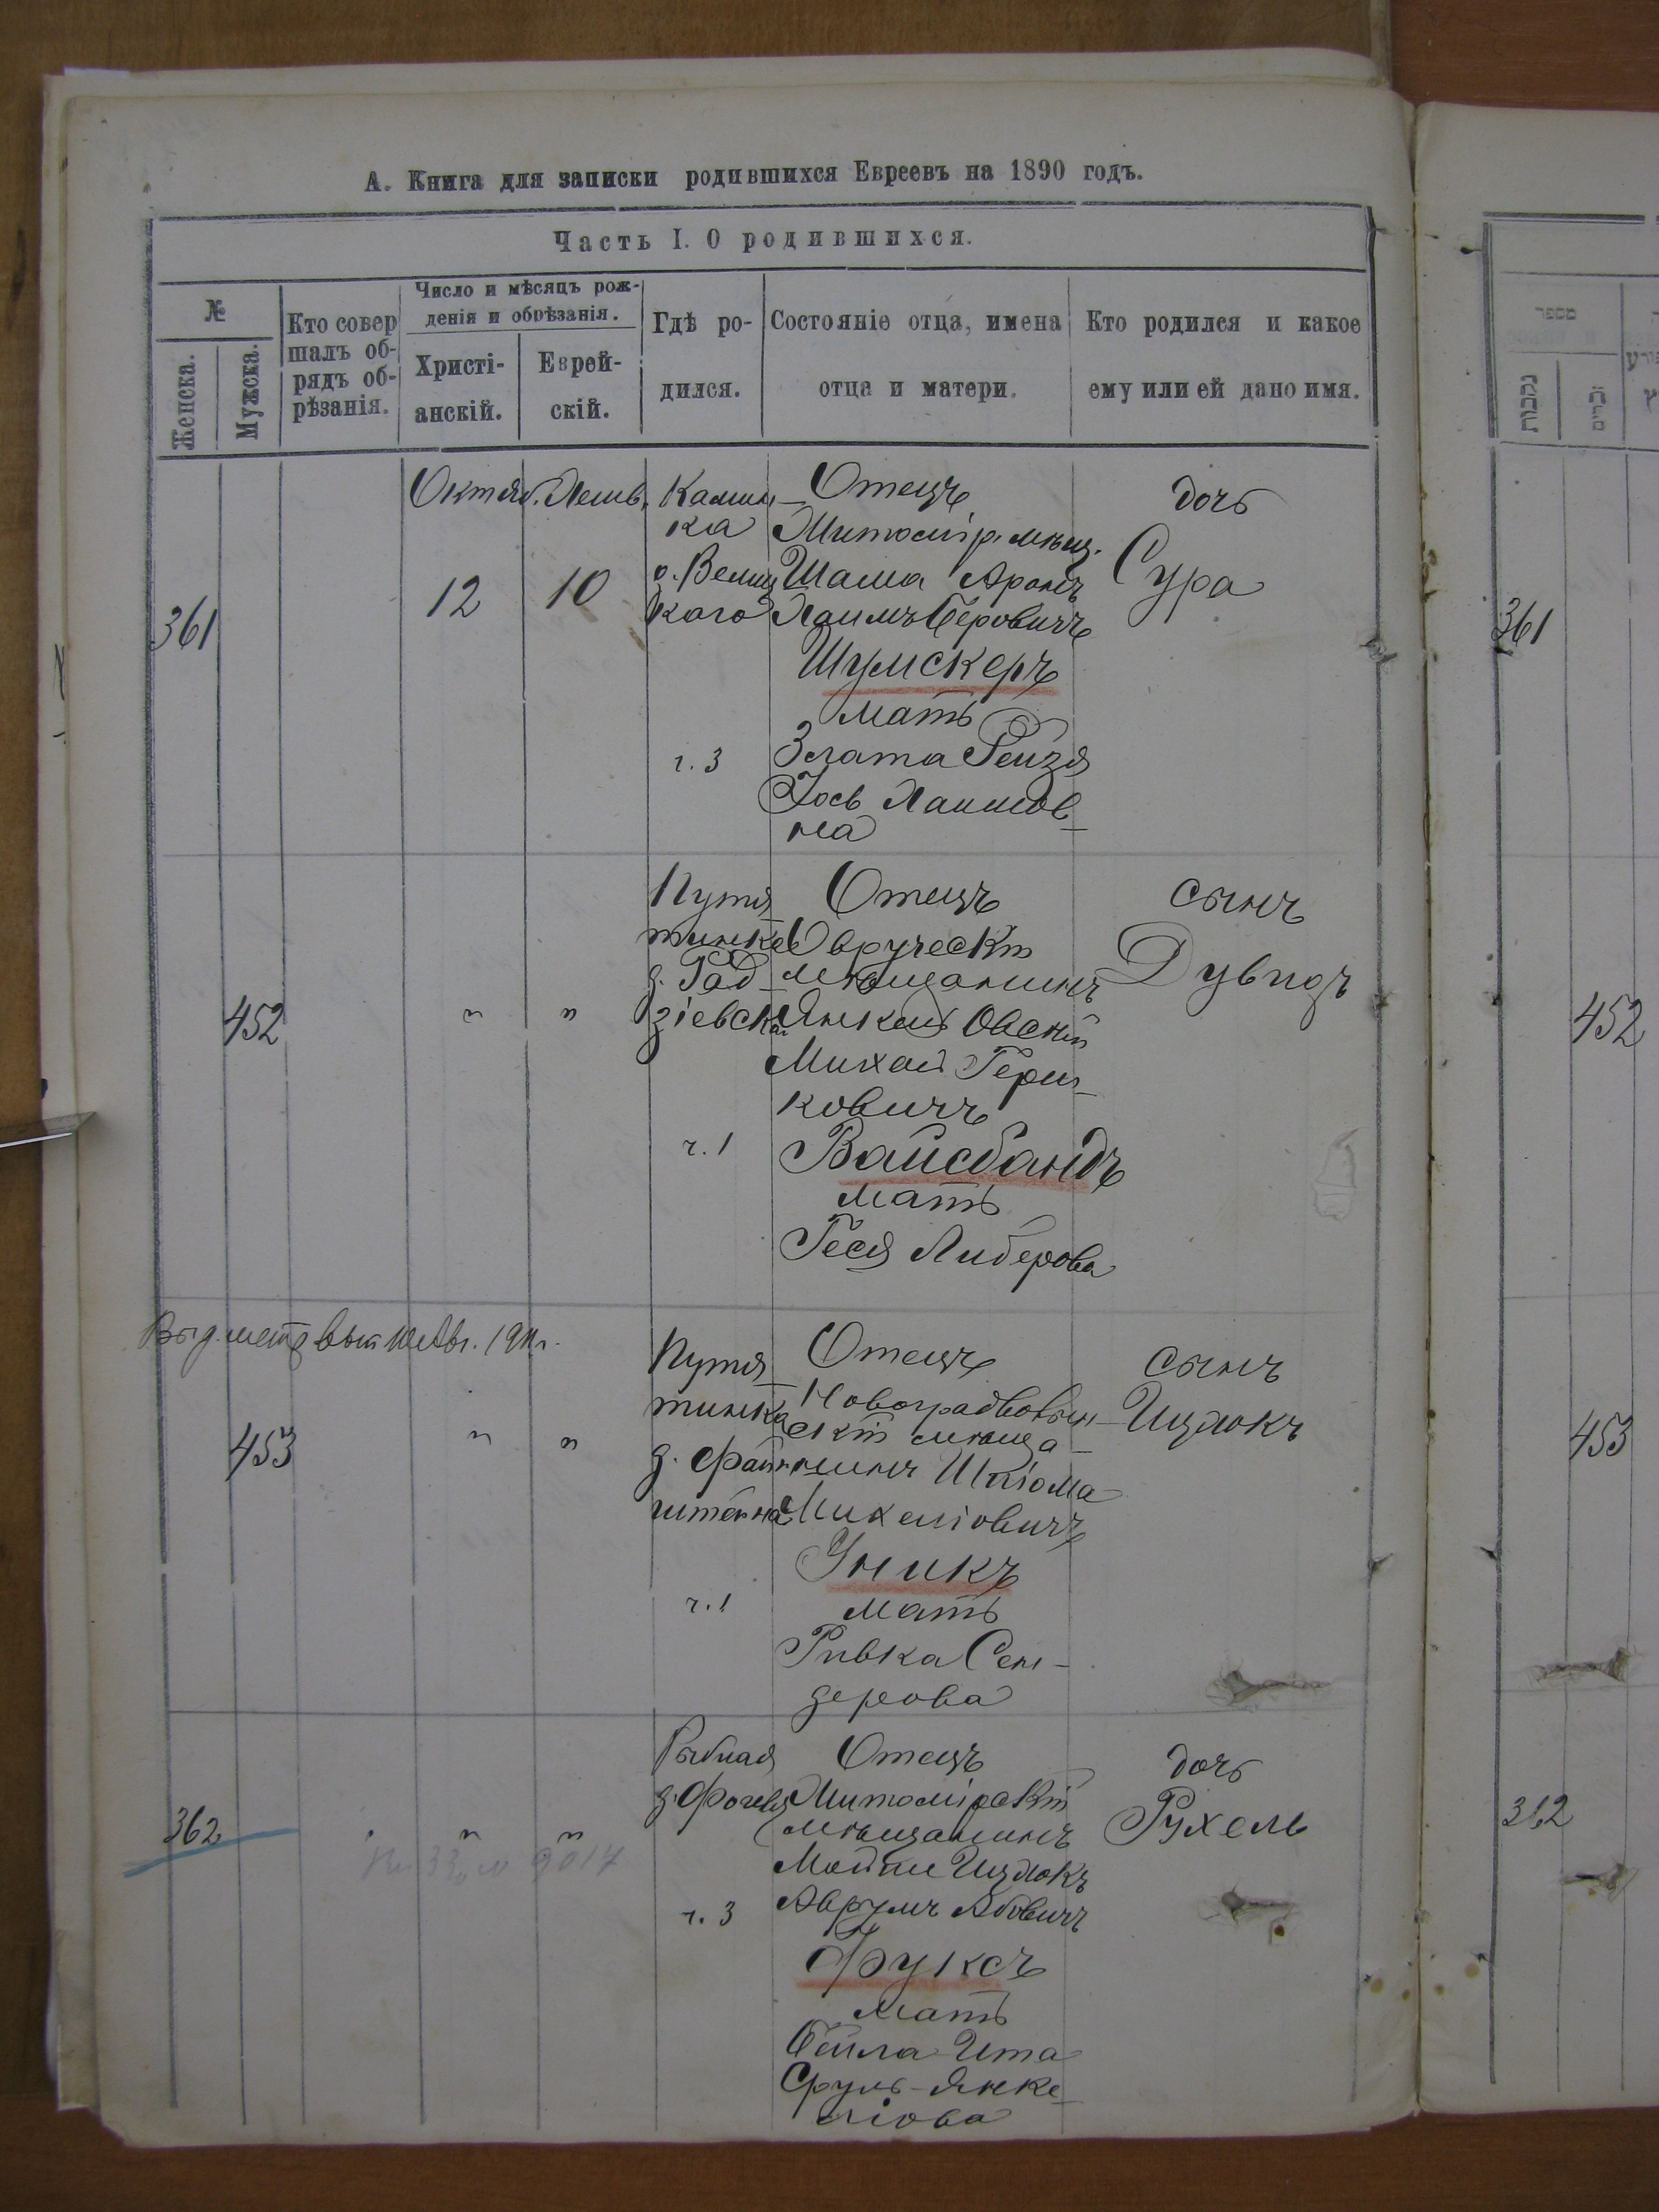 А. Книга для записки родившихся Евреевъ на 1890 годъ.
Часть I. О родившихся.
№
Женска.
Мужска.
Кто совер
шалъ об-
рядъ об-
рѣзанія.
Число и мѣсяцъ рож-
денія и обрѣзанія.
Христі-
анскій.
Еврей-
скій.
Гдѣ ро-
дился.
Состояніе отца, имена
отца и матери.
Кто родился и какое
ему или ей дано имя.
361
Октяб.
12
10
ка
кого
ч. 3
Отецъ
Житомір. мѣщ.
Шама Аронъ
Хаимъ Беровичъ
Шумскеръ
мать
Злата Рейзя
Іось Хаимов-
на
дочь
Сура
452
"
"
Путя
тинка
д. Рад-
зіевска
ч. 1
Отецъ
Овручскій
мѣщанинъ
Янкель Овсій
Михель Герш-
ковичъ
Вайсбандъ
мать
Геся Либерова
сынъ
Дувидъ
453
"
"
Путя
тинка
д. Файн
штейна
ч. 1
Отецъ
Новоградволын-
скій мѣща-
нинъ Шліома
Михеліовичъ
Уникъ
мать
Ривка Сен-
дерова
сынъ
Ицхокъ
362
"
"
Рыбная
ч. 3
Отецъ
Житомірскій
мѣщанинъ
Мойше Ицхокъ
Аврумъ Абовичъ
Фуксъ
мать
Бейла Ита
Сруль-Янке-
ліова
дочь
Рухель
מספר
נקבות
זכרים
361
452
453
362